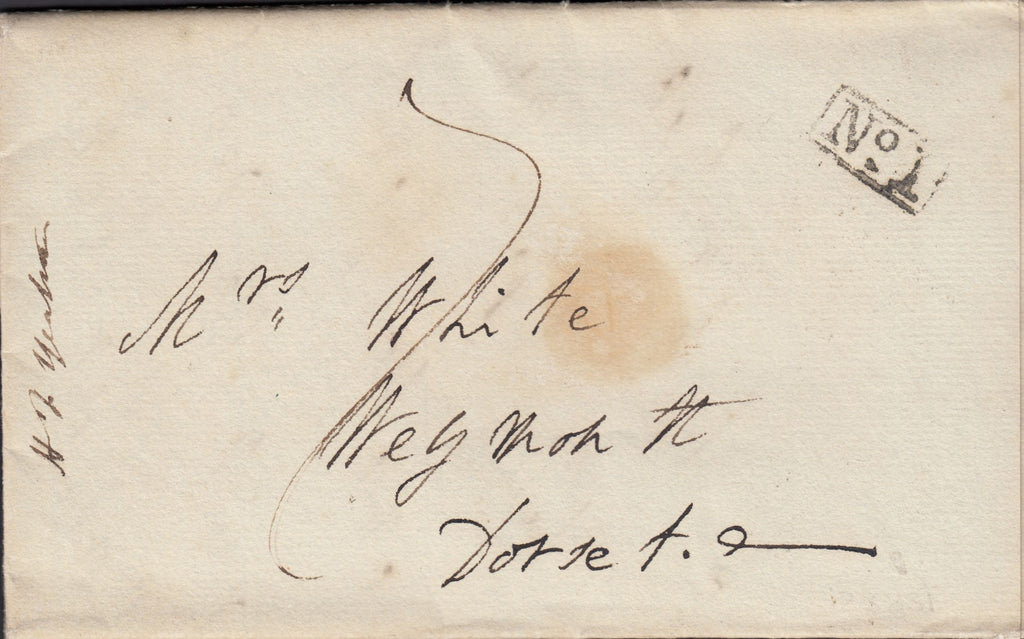 No. 1
Mrs White
Weymouth
Dorset.